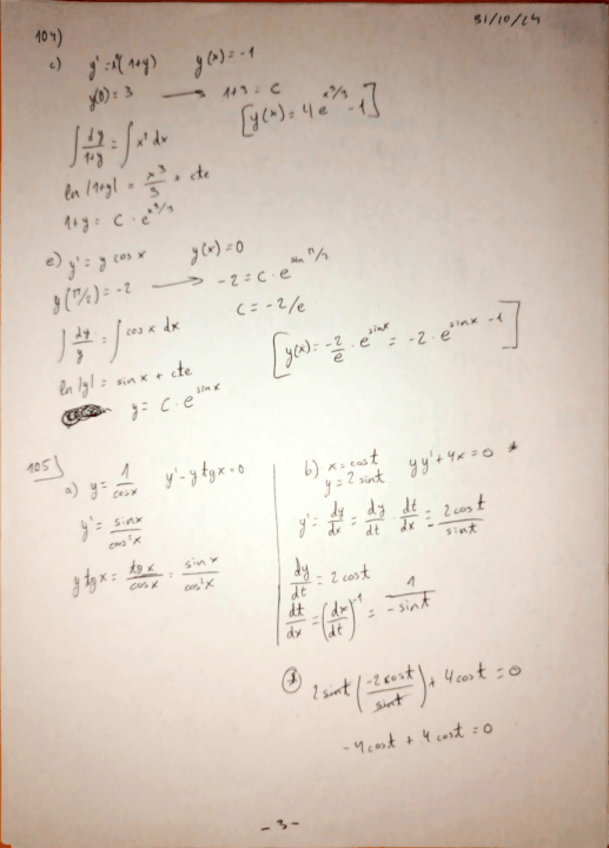 31/10/24
104)
c) y' = x²(1+y) y(x) = -1
y(0) = 3 → 1+3 = C
[y(x) = 4e^(x³/3) - 1]
∫ dy/(1+y) = ∫ x² dx
ln |1+y| = x³/3 + cte
1+y = C · e^(x³/3)
e) y' = y cos x y(x) = 0
y(π/2) = -2 → -2 = C · e^(sin π/2)
C = -2/e
∫ dy/y = ∫ cos x dx
[y(x) = -2/e · e^(sinx) = -2 · e^(sinx - 1)]
ln |y| = sin x + cte
y = C · e^(sinx)
105)
a) y = 1/cosx y' - y tgx = 0
y' = sinx/cos²x
y tgx = tgx/cosx = sinx/cos²x
b) x = cost yy' + 4x = 0 *
y = 2 sint
y' = dy/dx = dy/dt · dt/dx = 2cost/sint
dy/dt = 2 cost
dt/dx = (dx/dt)^-1 = 1/(-sint)
(*) 2 sint (-2cost/sint) + 4 cost = 0
-4 cost + 4 cost = 0
-3-